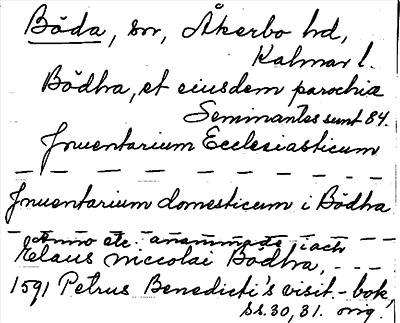 Böda, sn, Åkerbo hd,
Kalmar l.
Bödha, et eiusdem parochiæ
Seminantes sunt 84.
Jnuentarium Ecclesiasticum
— — — — — — — —
Jnuentarium domesticum i Bödha
— — — — — — — —
Anno etc. anammade iach
Claus Niccolai Bödha, — — —
1591 Petrus Benedicti's visit.-bok,
ss. 30, 31. orig.